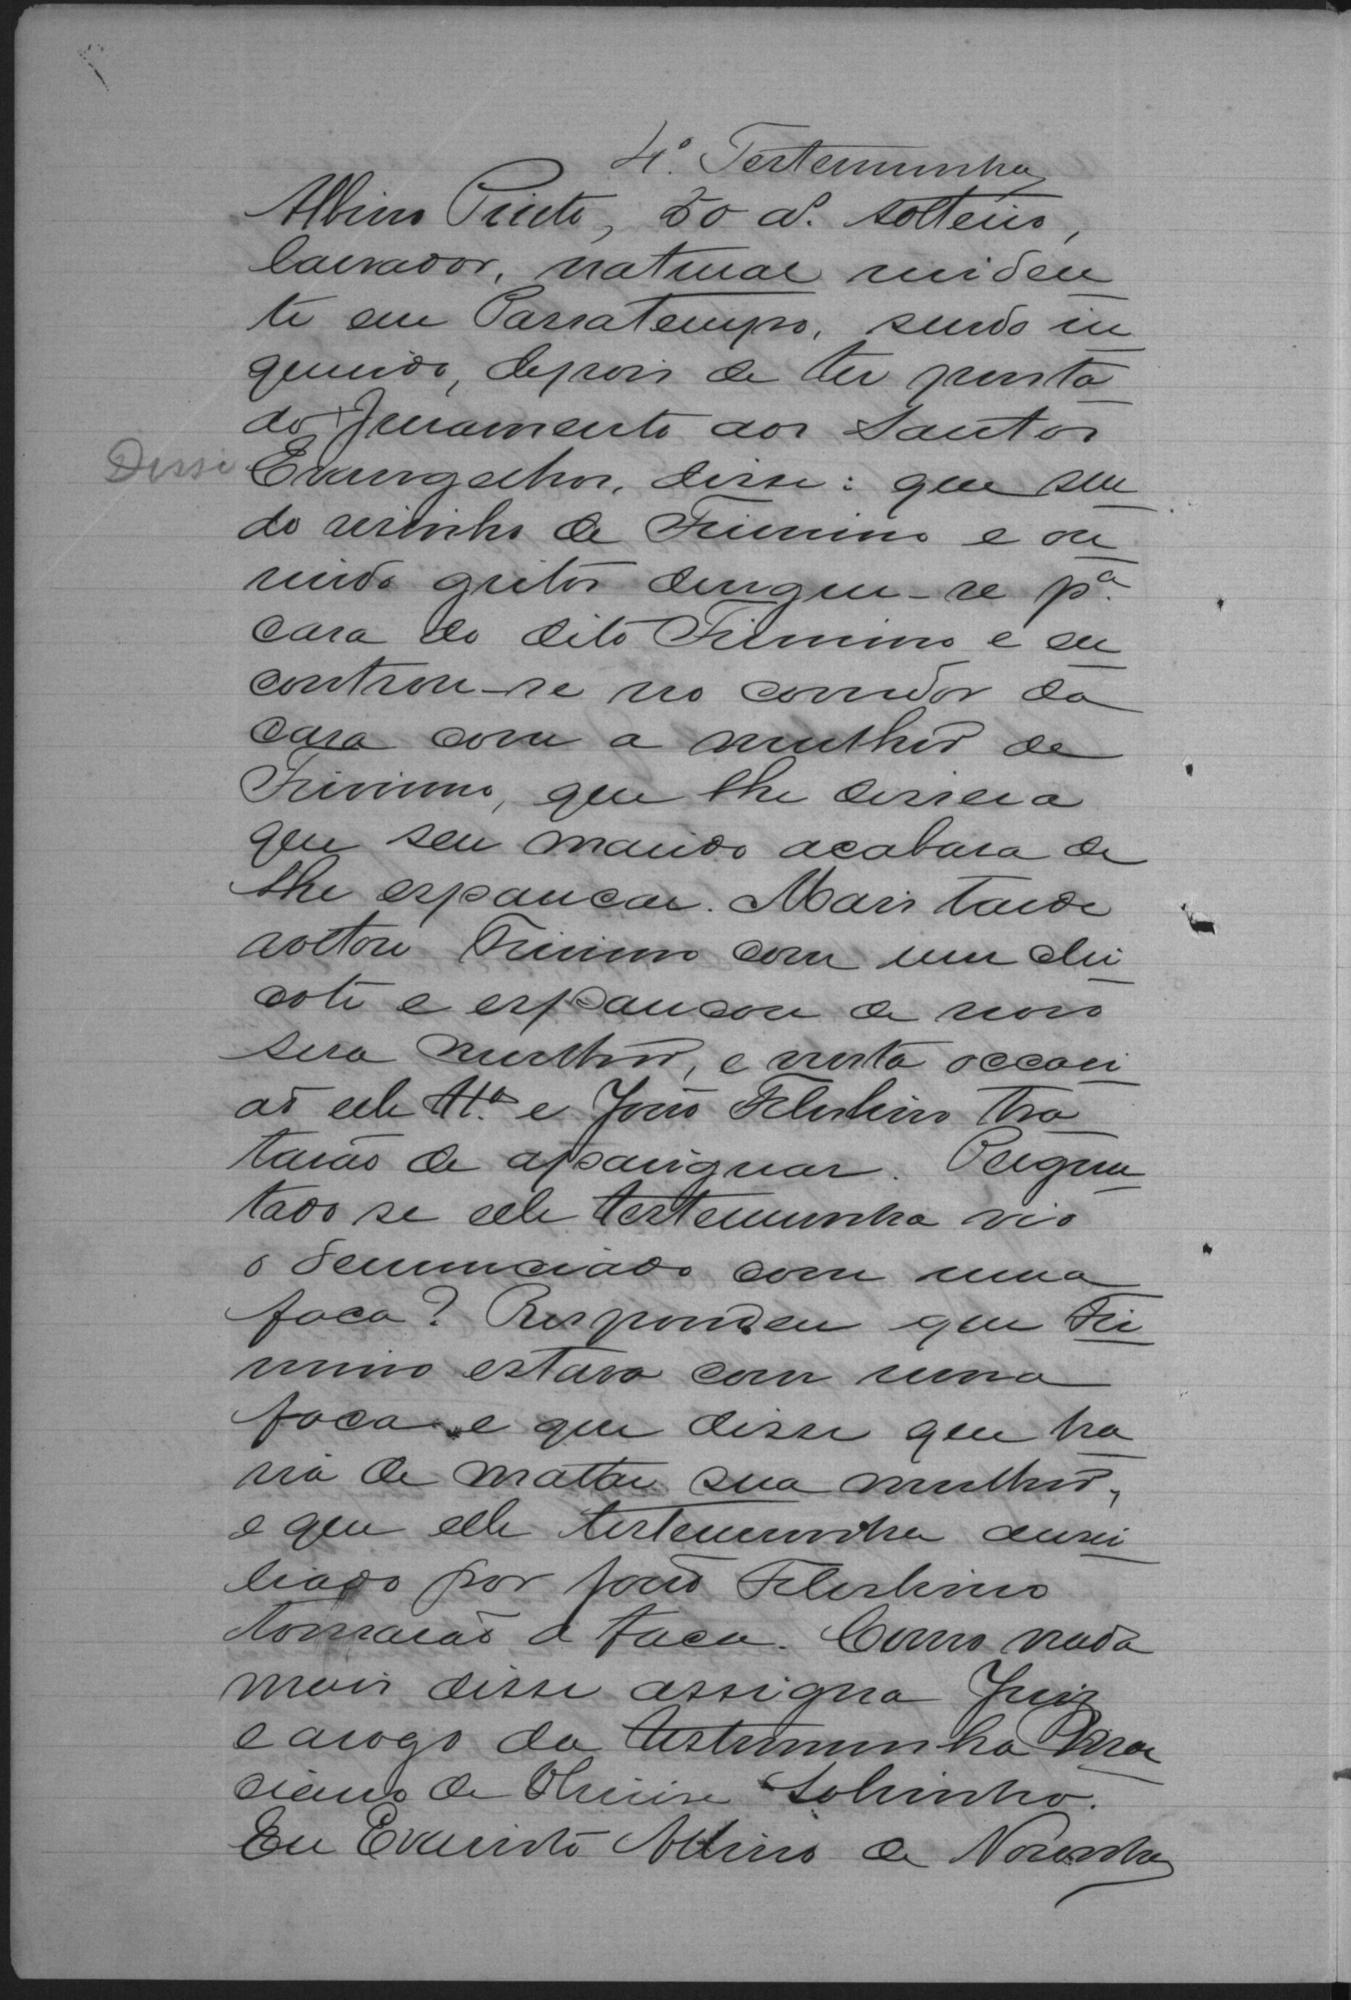 4ª. Testemunha
Albino Preto, 50 aˢ. solteiro,
lavrador, natural residen
te em Passatempo, sendo in
querido, depois de ter presta
do juramento aos Santos
Disse Evangelhos, disse: que sen
do visinho de Firmino e ou
vindo gritos dirigiu-se pª.
casa do dito Firmino e en
controu-se no corredor da
casa com a mulher de
Firmino, que lhe dissera
que seu marido acabara de
lhe espancar. Mais tarde
voltou Firmino com um chi
cote e espancou de novo
sua mulher, e nesta occasi
ão elle Tª e João Felisbino tra
tarão de apasiguar. Pergun
tado se elle testemunha vio
o denunciado com uma
faca? Respondeu que Fir
mino estava com uma
faca e que disse que ha
via de matar sua mulher,
e que elle testemunha auxi
liado por João Felisbino
tomarão a faca. Como nada
mais disse assigna Juiz
e arogo da testemunha
de Sobrinho.
Eu Evaristo Albino de Noronha